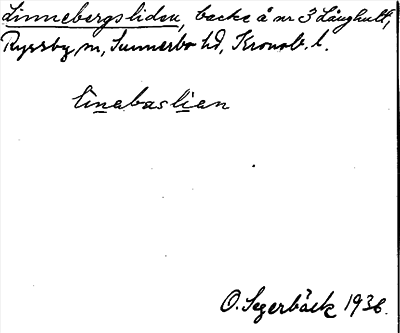 Linnebergsliden, backe å nr 3 Långhult,
Ryssby, sn, Sunnerbo hd, Kronob. l.
linabaslian
O. Segerbäck 1936.